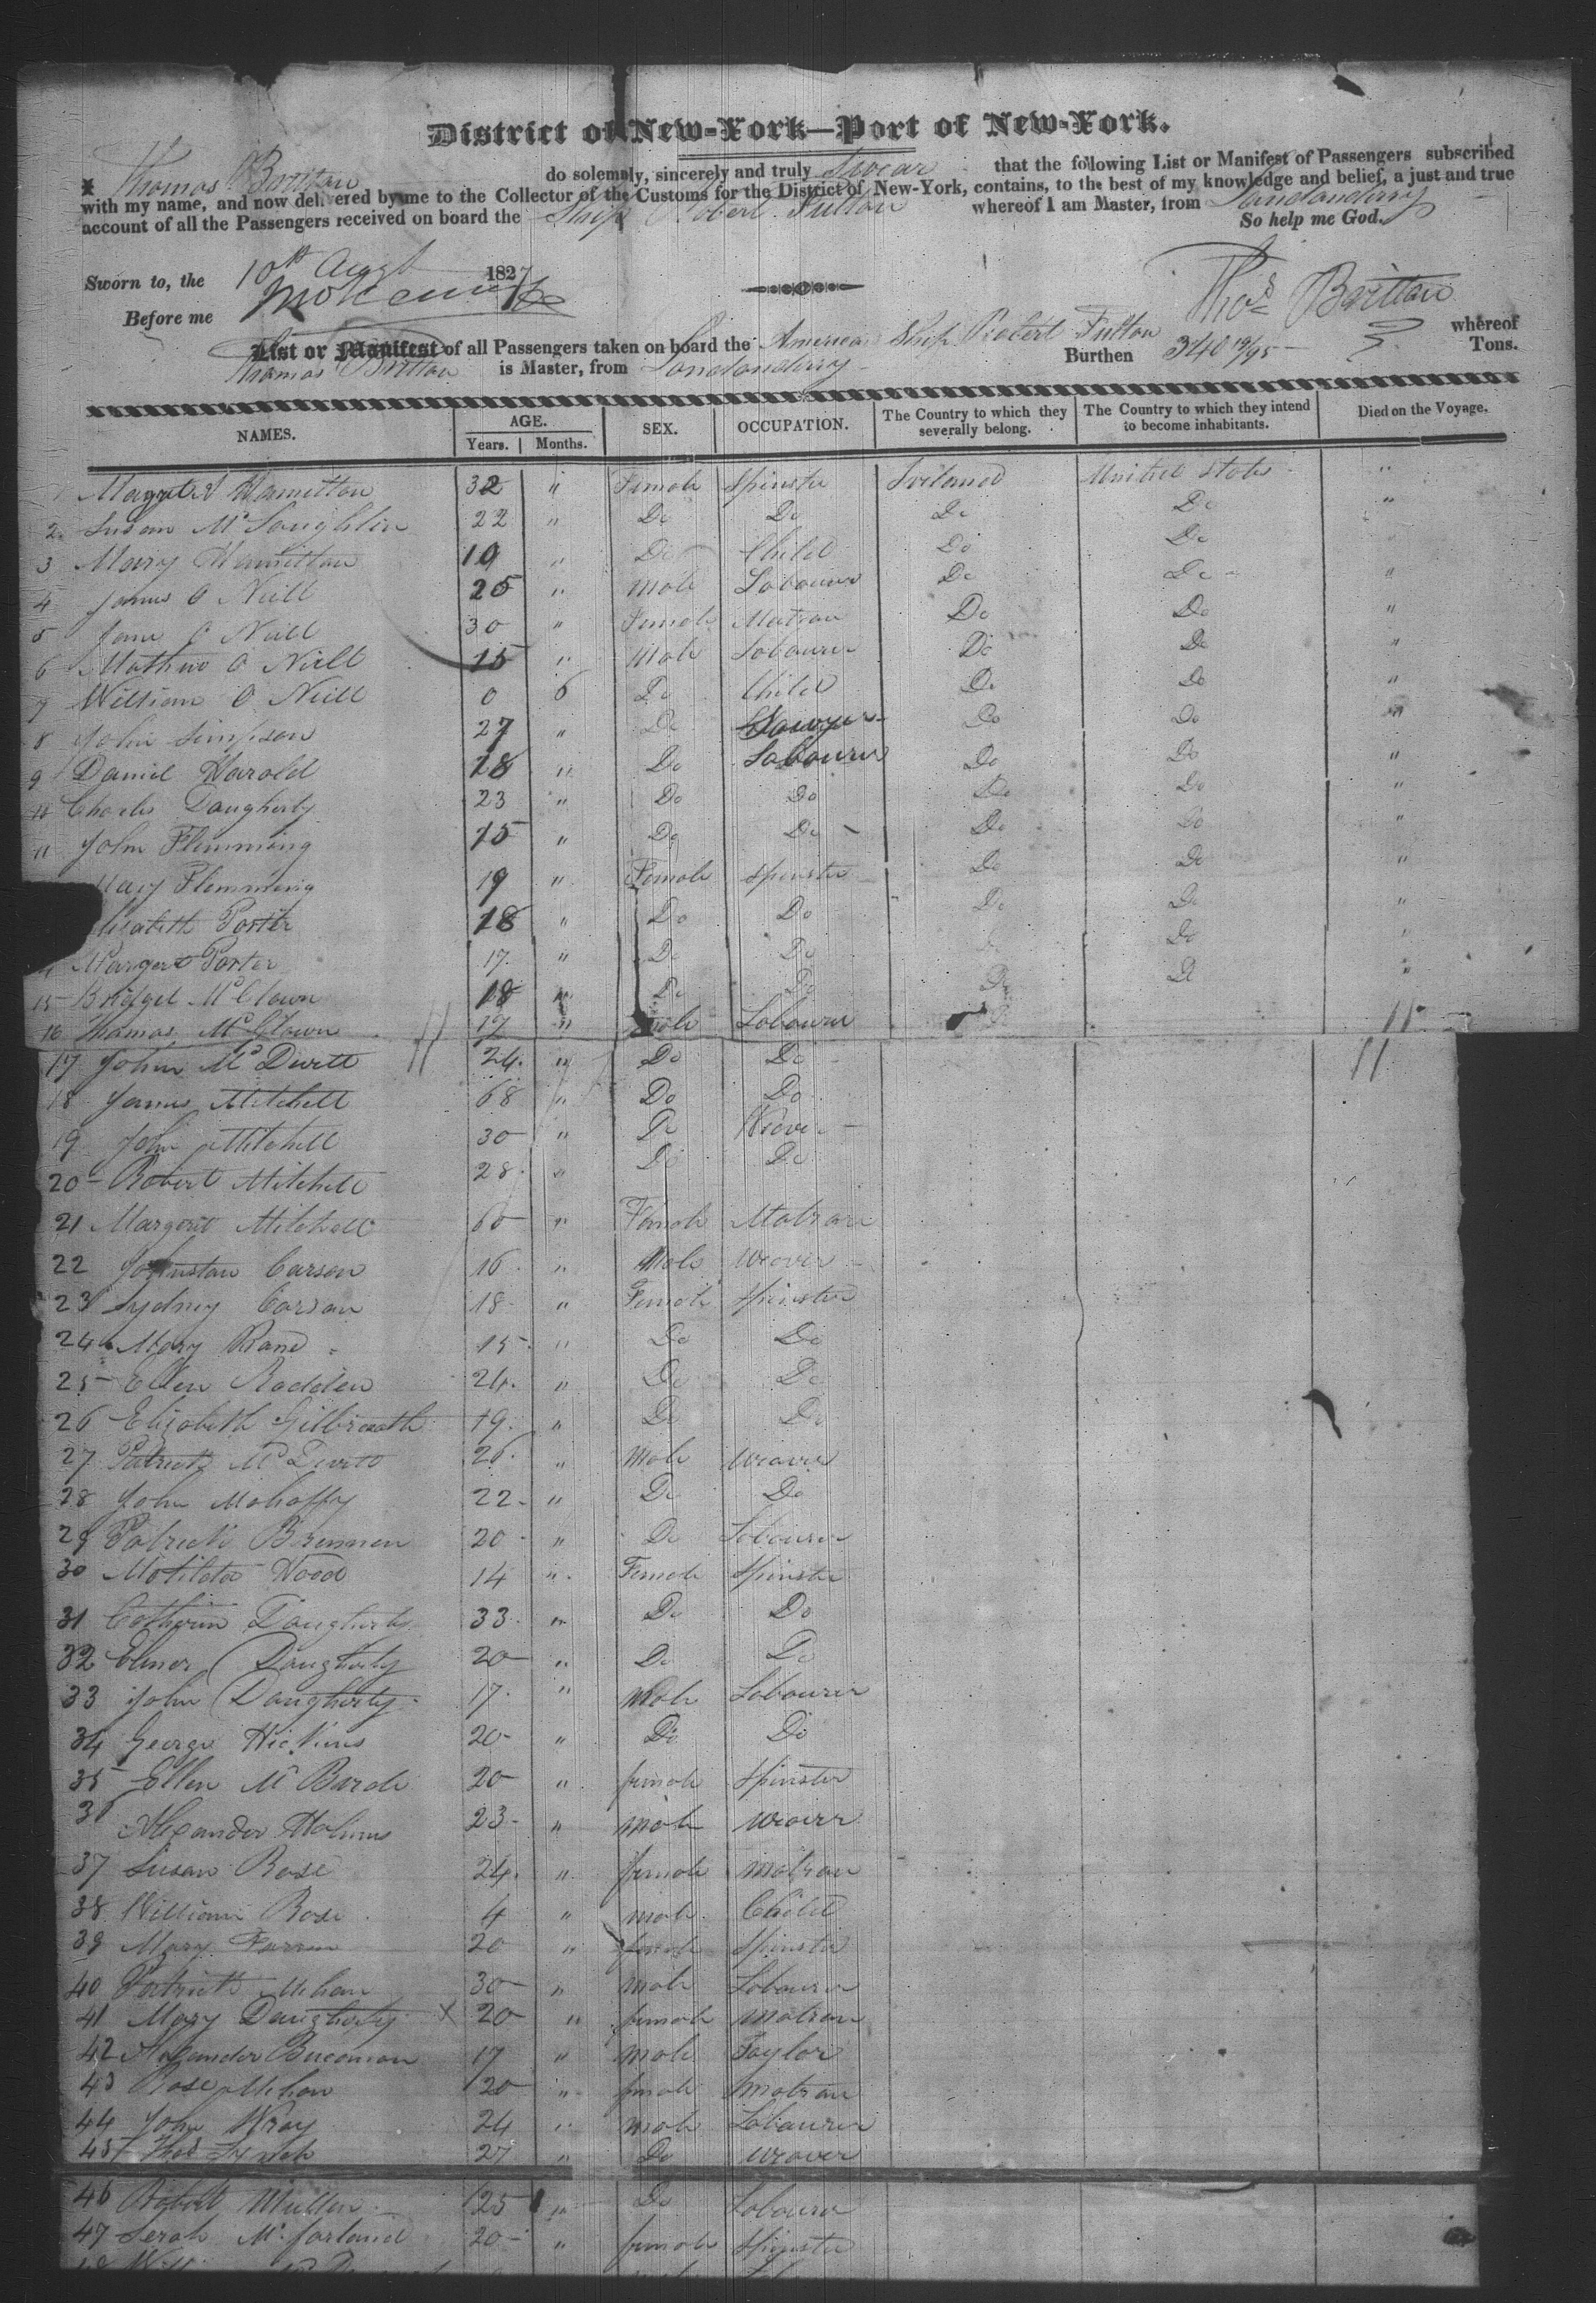 District of New-York—Port of New-York.
I Thomas Britton do solemnly, sincerely and truly Swear that the following List or Manifest of Passengers subscribed
with my name, and now delivered by me to the Collector of the Customs for the District of New-York, contains, to the best of my knowledge and belief, a just and true
account of all the Passengers received on board the Ship Robert Fulton whereof I am Master, from Londonderry
So help me God.
Sworn to, the 10th Augt 1827
Thos Britton
Before me
List or Manifest of all Passengers taken on board the American Ship Robert Fulton whereof
Thomas Britton is Master, from Londonderry Burthen 340 19/95 Tons.
NAMES. AGE. Years. Months. SEX. OCCUPATION. The Country to which they severally belong. The Country to which they intend to become inhabitants. Died on the Voyage.
Hamilton 32 " Female Spinster Ireland United States "
2 Susan McLaughlin 22 " Do Do Do Do "
3 Mary Hamilton 10 " Do Child Do Do
4 James O Neill 25 " Male Labourer Do Do "
5 Jane O Neill 30 " Female Matron Do Do "
6 Mathew O Neill 15 " Male Labourer Do Do "
7 William O Neill 0 6 Do Child Do Do "
8 John Simpson 27 " Do Sawyer Do Do "
9 Daniel Harold 18 " Do Labourer Do Do "
Charles Daugherty 23 " Do Do Do Do "
11 John Flemming 15 " Do Do Do Do "
Mary Flemming 19 " Female Spinster Do Do "
lizabeth Porter 18 " Do Do Do Do "
4 Margert Porter 17 " Do Do Do "
15 Bridget McClown 18 " Do Do Do D "
16 Thomas McGlown 17 " Male Labourer
17 John McDevitt 24 " Do Do
18 James Mitchell 68 " Do Do
19 John Mitchell 30 " Do
20 Robert Mitchell 28 " Do Do
21 Margerit Mitchell 60 " Female Matron
22 Johnstan Carson 16 " Male Weaver
23 Sydney Carson 18 " Female Spinster
24 Mary Rane 15 " Do Do
25 Ellen Rodden 24 " Do Do
26 Elizabeth Gilbreath 19 " Do Do
27 Patrick McDevitt 26 " Male Weaver
28 John Mahaffy 22 " Do Do
29 Patrick Brennen 20 " Do Labourer
30 Matilda Wood 14 " Female Spinster
31 Catherin Daugherty 33 " Do Do
32 Elinor Daugherty 20 " Do Do
33 John Daugherty 17 " Male Labourer
34 George 20 " Do Do
35 Ellen McBarde 20 " female Spinster
36 Alexander Holmes 23 " male Weaver
37 Susan Rose 24 " female Matron
38 William Rose 4 " male Child
39 Mary Farren 20 " female Spinster
40 Patrick Mehan 30 " male Labourer
41 Mary Daugherty X 20 " female Matron
42 Alexander Bucannan 17 " male Taylor
43 Rose Mehan 20 " female Matron
44 John Wray 24 " male Labourer
45 Thos Lynch 27 " Do Weaver
46 Robert Mullen 25 " Do Labourer
47 Serah McFarland 20 " female Spinster